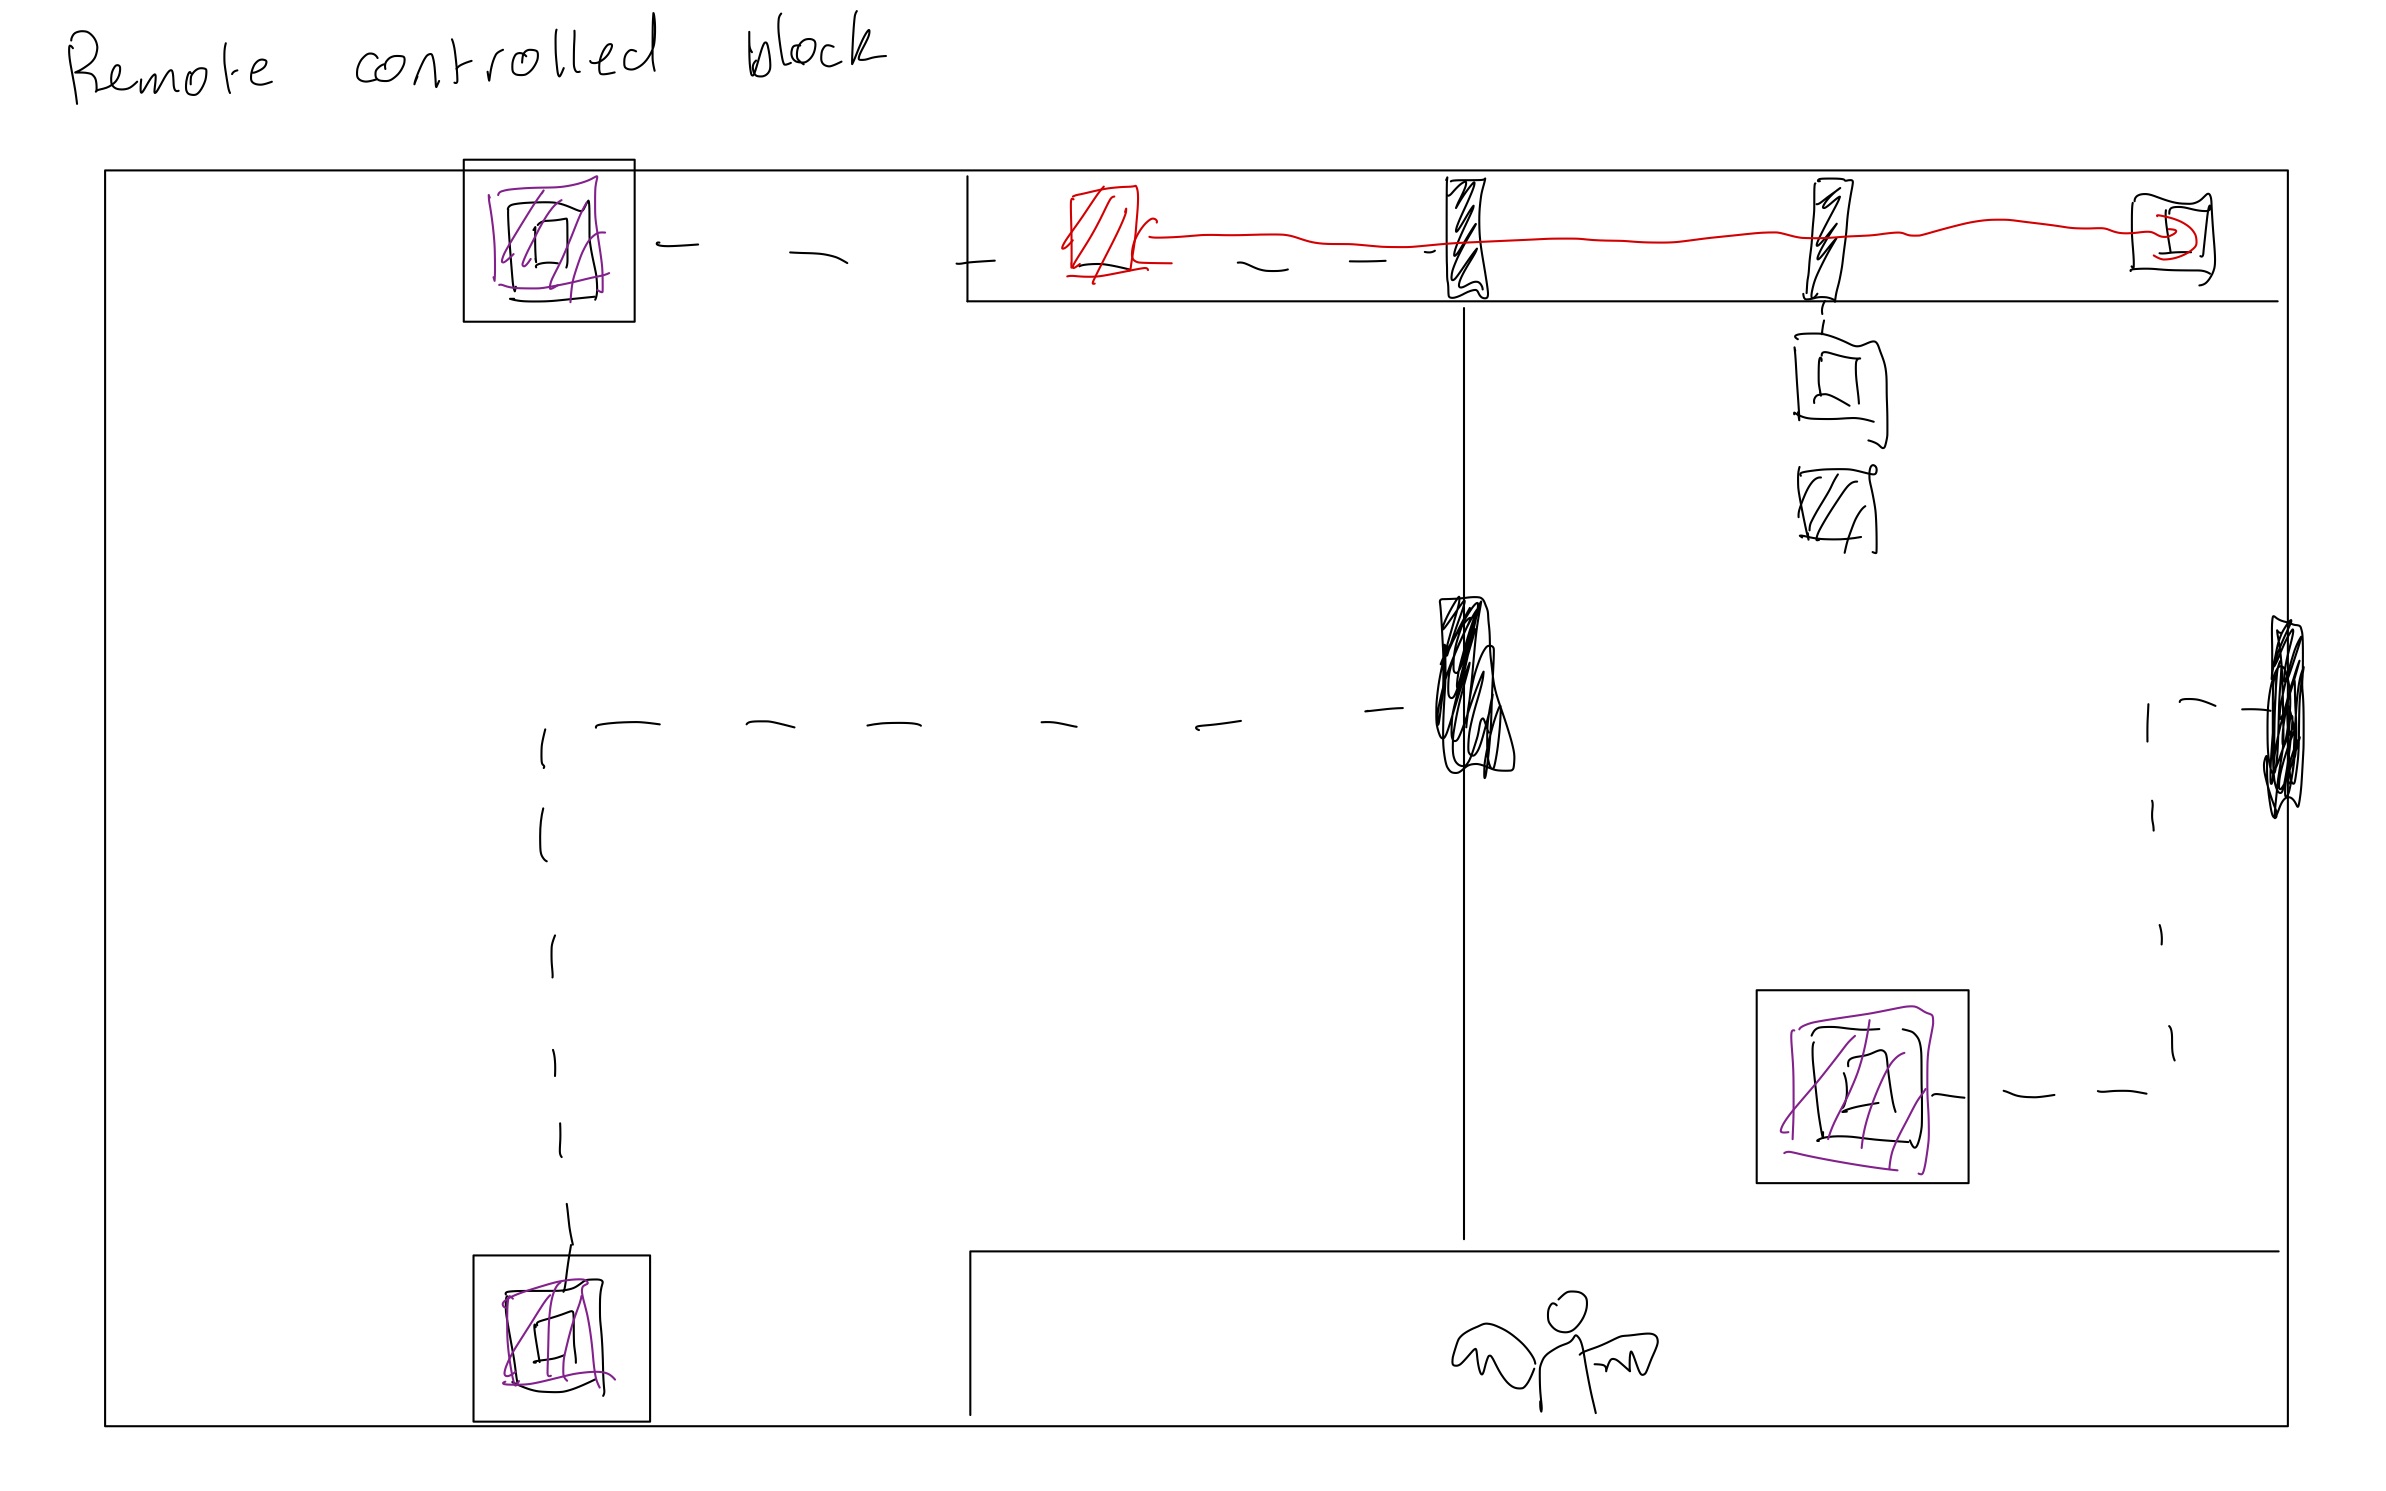 Remote controlled block